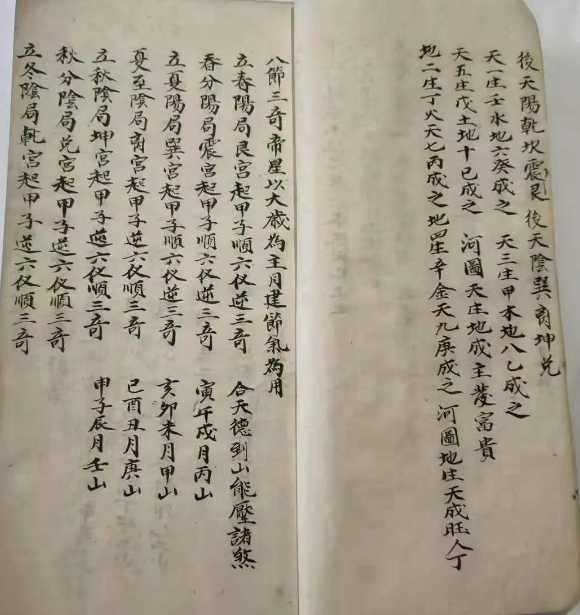 後天陽乾坎震艮 後天陰巽离坤兑
天一生壬水地六癸成之 天三生甲木地八乙成之
天五生戊土地十己成之 河圖天生地成主發富貴
地二生丁火天七丙成之地四生辛金天九庚成之河圖地生天成旺人丁
八節三奇帝星以大歲為主月建節氣為用
立春陽局艮宮起甲子順六仪逆三奇 合天德到山能壓諸煞
春分陽局震宮起甲子順六仪逆三奇 寅午戌月丙山
立夏陽局巽宮起甲子順六仪逆三奇 亥卯未月甲山
夏至陰局离宮起甲子逆六仪順三奇 巳酉丑月庚山
立秋陰局坤宮起甲子逆六仪順三奇 申子辰月壬山
秋分陰局兑宮起甲子逆六仪順三奇
立冬陰局乾宮起甲子逆六仪順三奇